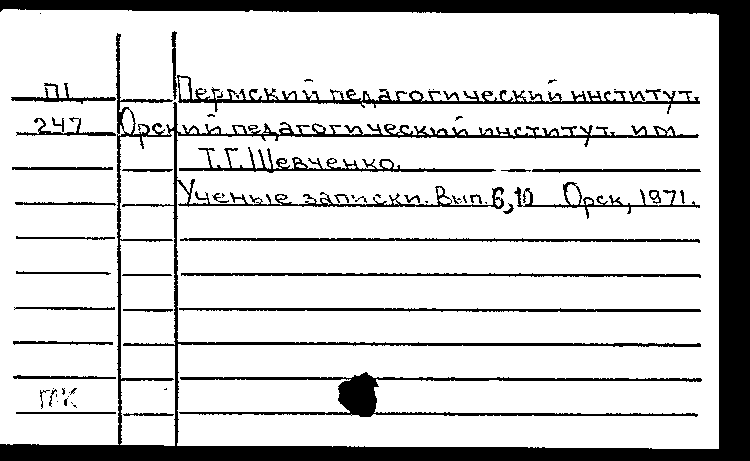 П1 Пермский педагогический институт.
247 Орский педагогический институт. им.
Т.Г. Шевченко.
Ученые записки. Вып. 6,10 Орск, 1971.
ПК